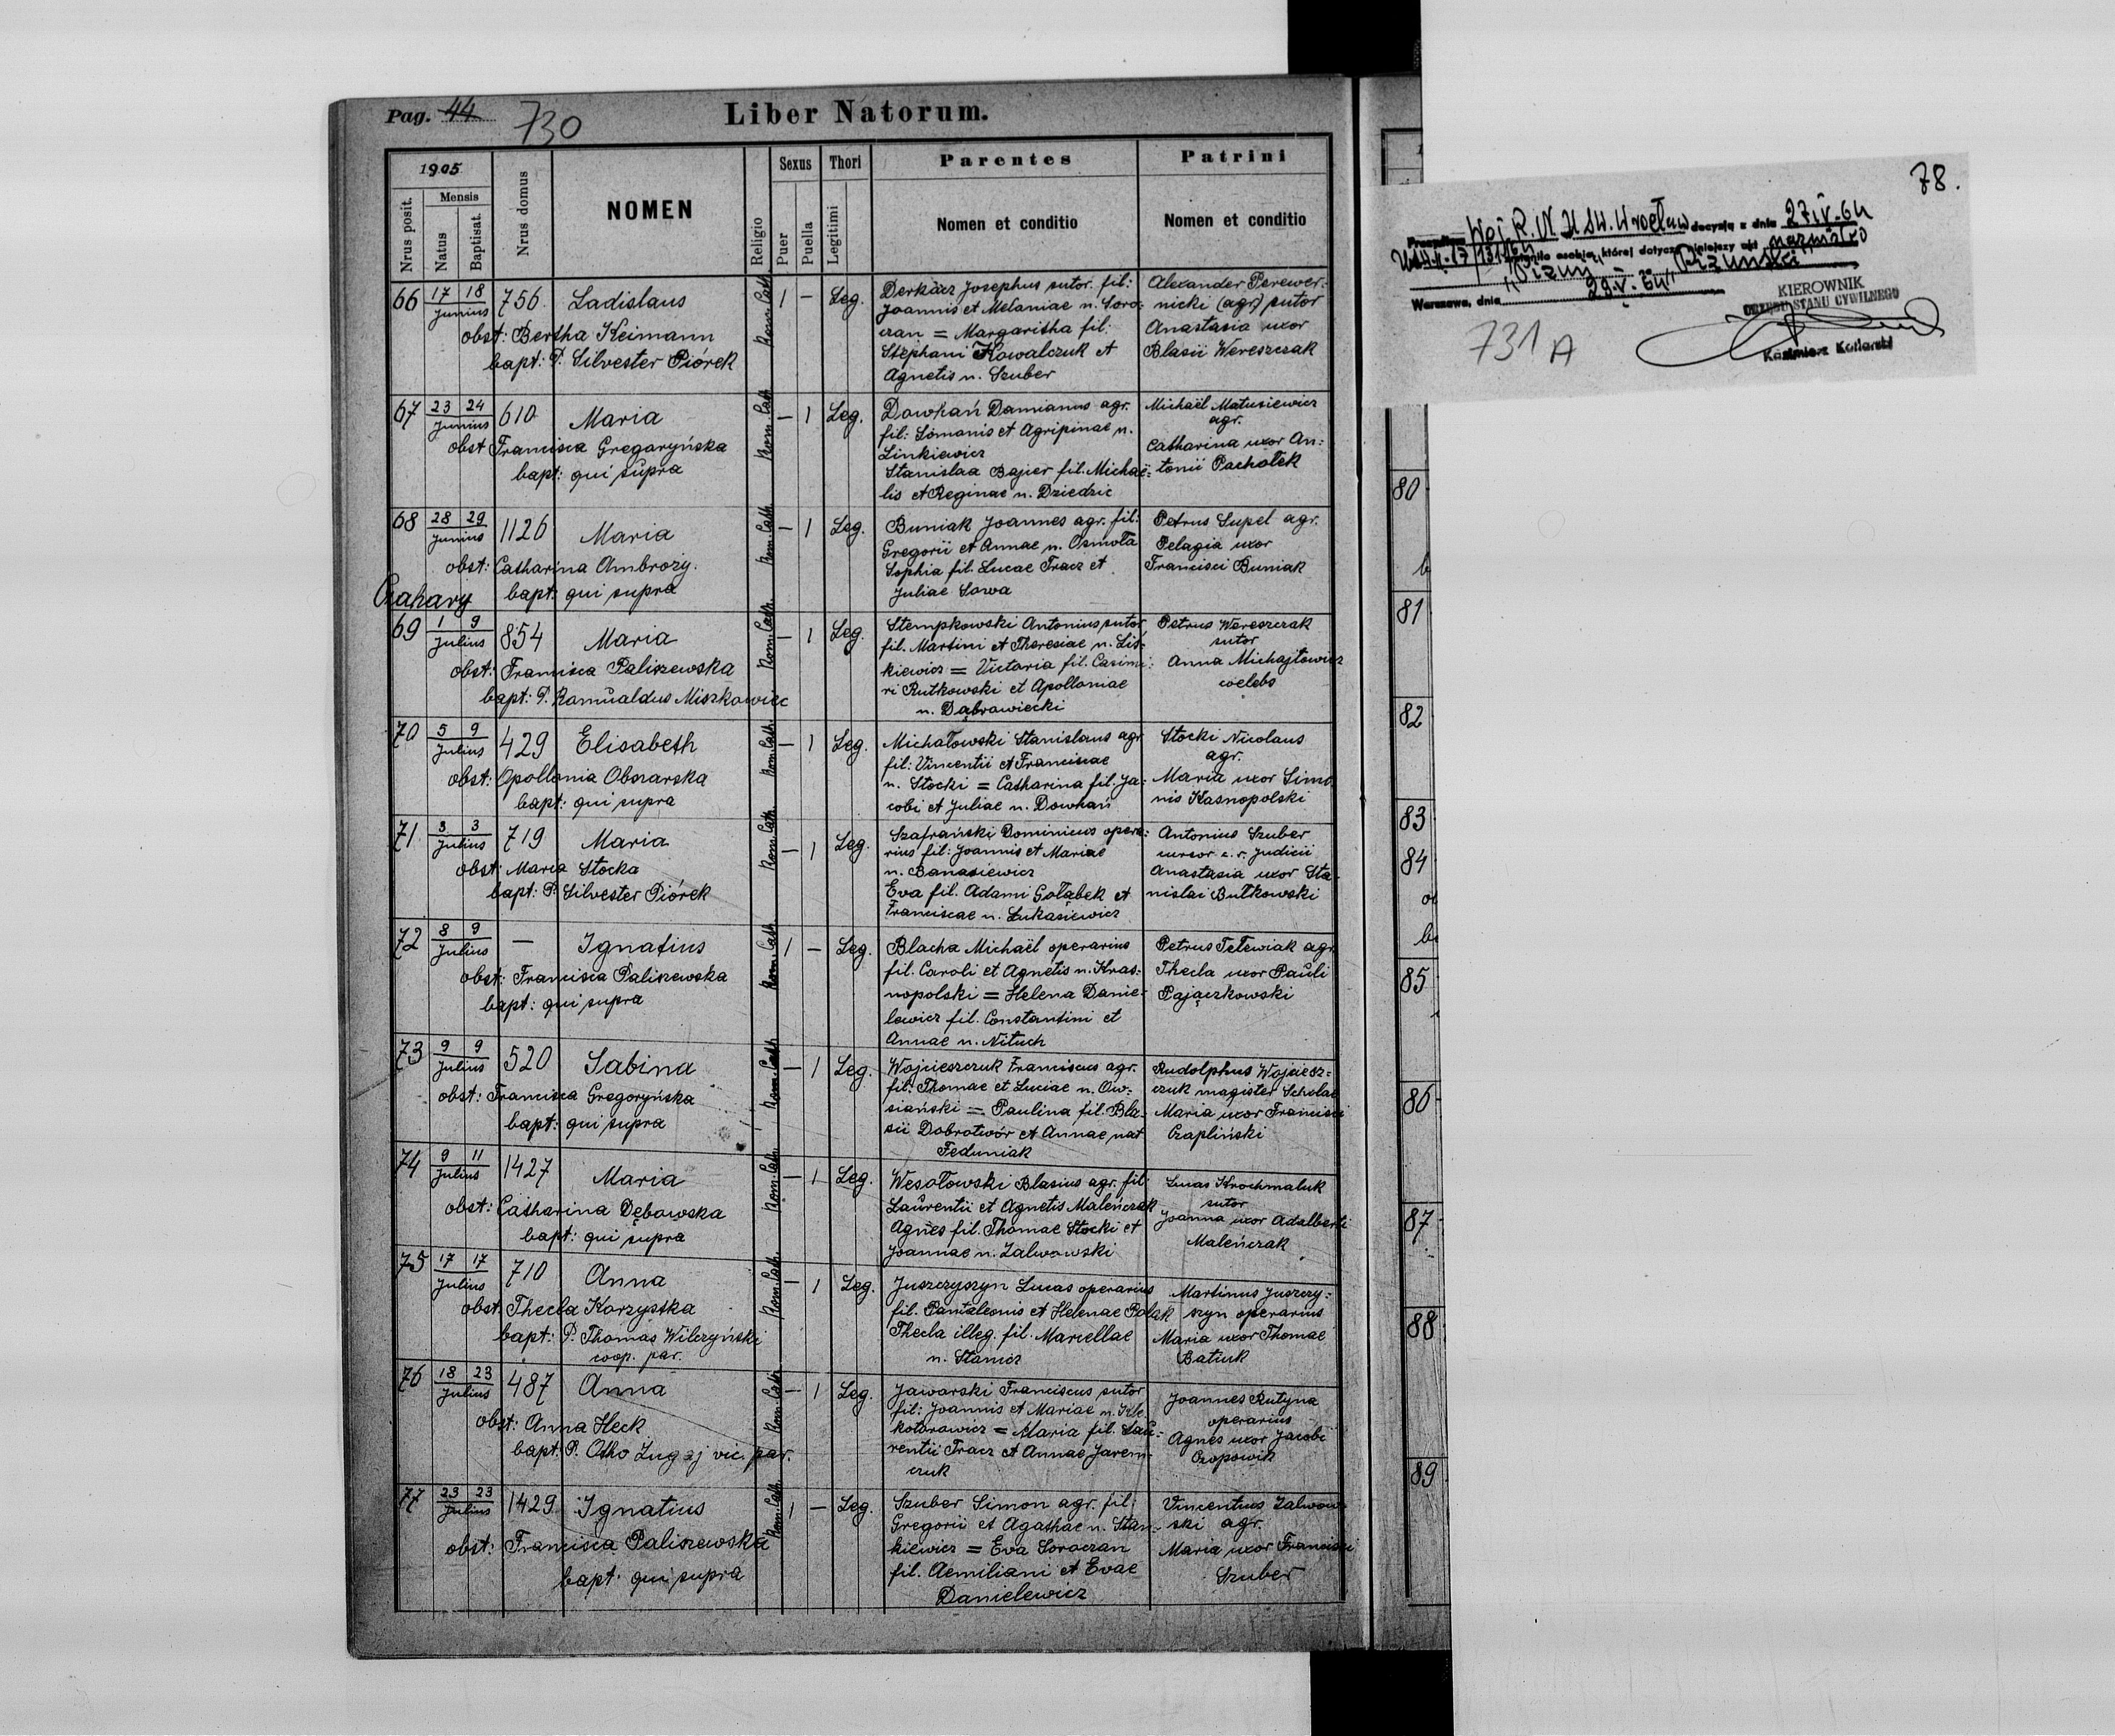 Pag. 44 730 Liber Natorum.
1905
Nrus posit.
Mensis
Natus
Baptisat.
Nrus domus
NOMEN
Religio
Sexus
Puer
Puella
Thori
Legitimi
Parentes
Nomen et conditio
Patrini
Nomen et conditio
66 17 18 Junius 756 Ladislaus Rom. Cath. 1 – Leg.
obst: Bertha Keimann
bapt: P. Silvester Piórek
Derkacz Josephus sutor. fil:
Joannis et Melaniae n. Soro-
czan = Margaritha fil:
Stephani Kowalczuk et
Agnetis n. Szuber
Alexander Perewer-
nicki (agr) sutor
Anastasia uxor
Blasii Wereszczak
67 23 24 Junius 610 Maria Rom. Cath. – 1 Leg.
obst Francisca Gregaryńska
bapt: qui supra
Dowhań Damianus agr.
fil: Simonis et Agripinae n.
Linkiewicz
Stanislaa Bajier fil. Michaë-
lis et Reginae n. Dziedzic
Michaël Matusiewicz
agr.
Catharina uxor An:
tonii Pachołek
68 28 29 Junius 1126 Maria Rom. Cath. – 1 Leg.
obst: Catharina Ambroży.
Czahary bapt: qui supra
Buniak Joannes agr. fil:
Gregorii et Annae n. Osmoła
Sophia fil. Lucae Tracz et
Juliae Sowa
Petrus Supel agr.
Pelagia uxor
Francisci Buniak
69 1 9 Julius 854 Maria Rom. Cath. – 1 Leg.
obst: Francisca Paliszewska
bapt: P. Romualdus Miszkowicz
Stempkowski Antonius sutor
fil. Martini et Theresiae n. Lis-
kiewicz = Victoria fil. Casimi:
ri Rutkowski et Apolloniae
n. Dąbrowiecki
Petrus Wereszczak
sutor
Anna Michajłowicz
coelebs
70 5 9 Julius 429 Elisabeth Rom. Cath. – 1 Leg.
obst: Apollonia Obszarska
bapt: qui supra
Michałowski Stanislaus agr
fil: Vincentii et Franciscae
n. Stocki = Catharina fil. Ja-
cobi et Juliae n. Dowhań
Stocki Nicolaus
agr.
Maria uxor Simo
nis Krasnopolski
71 3 3 Julius 719 Maria Rom. Cath. – 1 Leg.
obst: Maria Stocka
bapt: P. Silvester Piórek
Szafrański Dominicus opera:
rius fil: Joannis et Mariae
n. Banasiewicz
Eva fil. Adami Gołąbek et
Franciscae n. Łukasiewicz
Antonius Szuber
cursor c. r. Judicii
Anastasia uxor Sta
nislai Butkowski
72 8 9 Julius – Ignatius Rom. Cath. 1 – Leg.
obst: Francisca Paliszewska
bapt: qui supra
Blacha Michaël operarius
fil. Caroli et Agnetis n. Kras-
nopolski = Helena Danie-
lewicz fil. Constantini et
Annae n. Nituch
Petrus Telewiak agr
Thecla uxor Pauli
Pajączkowski
73 9 9 Julius 520 Sabina Rom. Cath. – 1 Leg.
obst: Francisca Gregoryńska
bapt: qui supra
Wojcieszczuk Franciscus agr.
fil. Thomae et Luciae n. Ow-
siański = Paulina fil. Bla-
sii Dobrotwór et Annae nat
Feduniak
Rudolphus Wojciesz-
czuk magister Scholae
Maria uxor Francisci
Czapliński
74 9 11 Julius 1427 Maria Rom. Cath. – 1 Leg.
obst: Catharina Dębowska
bapt: qui supra
Wesołowski Blasius agr. fil
Laurentii et Agnetis Maleńczak
Agnes fil. Thomae Stocki et
Joannae n. Zalwowski
Lucas Krochmaluk
sutor
Joanna uxor Adalberti
Maleńczak
75 17 17 Julius 710 Anna Rom. Cath. – 1 Leg.
obst. Thecla Korzystka
bapt: P. Thomas Wilczyński
coop. par.
Juszczyszyn Lucas operarius
fil. Pantaleonis et Helenae Polak
Thecla illeg. fil. Marcellae
n. Stanicz
Martinus Juszczy-
szyn operarius
Maria uxor Thomae
Batiuk
76 18 23 Julius 487 Anna Rom. Cath. – 1 Leg.
obst: Anna Heck
bapt: P. Otho Zugaj vic. par.
Jaworski Franciscus sutor
fil: Joannis et Mariae n. Kle-
kotorowicz = Maria fil. Lau-
rentii Tracz et Annae Jarem-
czuk
Joannes Rutyna
operarius
Agnes uxor Jacobi
Czopowik
77 23 23 Julius 1429 Ignatius Rom. Cath. 1 – Leg.
obst: Francisca Paliszewska
bapt: qui supra
Szuber Simon agr. fil:
Gregorii et Agathae n. Stan-
kiewicz = Eva Soroczan
fil. Aemiliani et Evae
Danielewicz
Vincentius Zalwow-
ski agr.
Maria uxor Francisci
Szuber
78.
Woj. R. N. U.S.W. Wrocław decyzją z dnia 27.IV.64
osobie, której dotyczy niniejszy akt nazwisko
Warszawa, dnia 29.V.64
KIEROWNIK
URZĘDU STANU CYWILNEGO
Kazimierz Kotlarski
731A
80
81
82
83
84
85
86
87
88
89